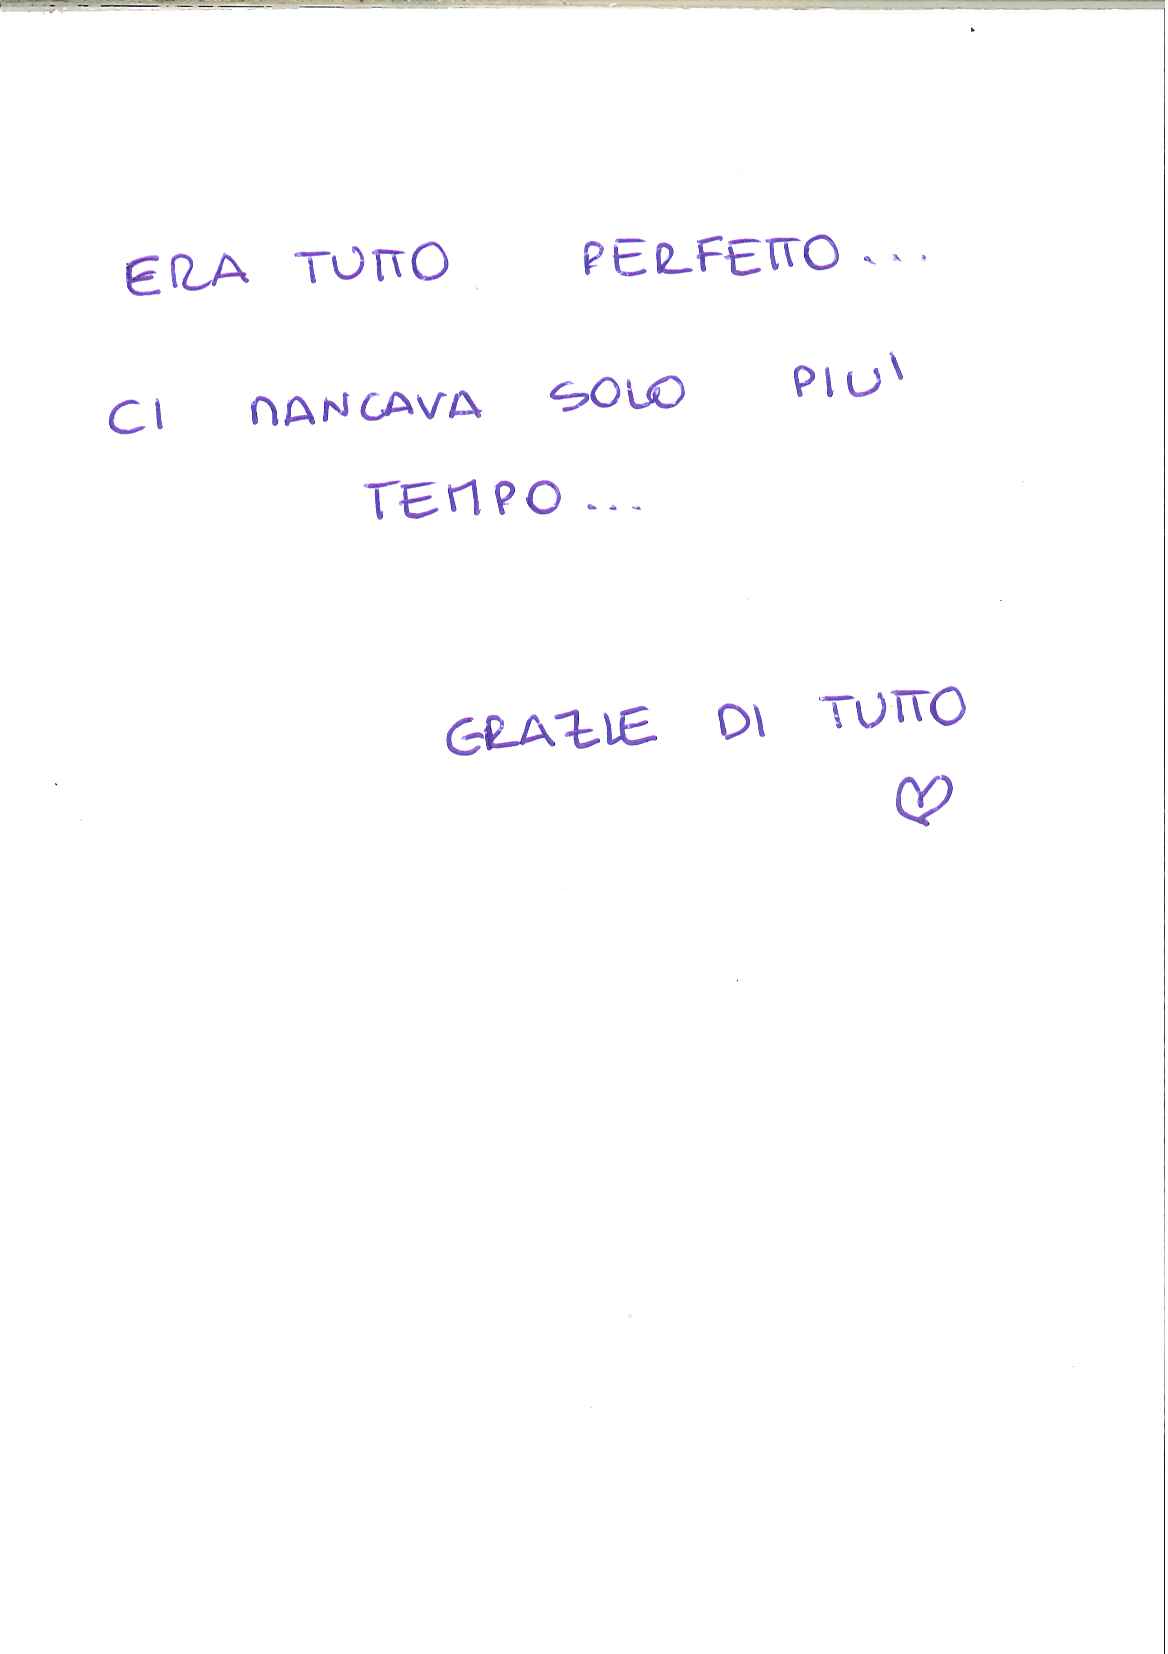 ERA TUTTO PERFETTO...
CI MANCAVA SOLO PIU'
TEMPO...
GRAZIE DI TUTTO
♡